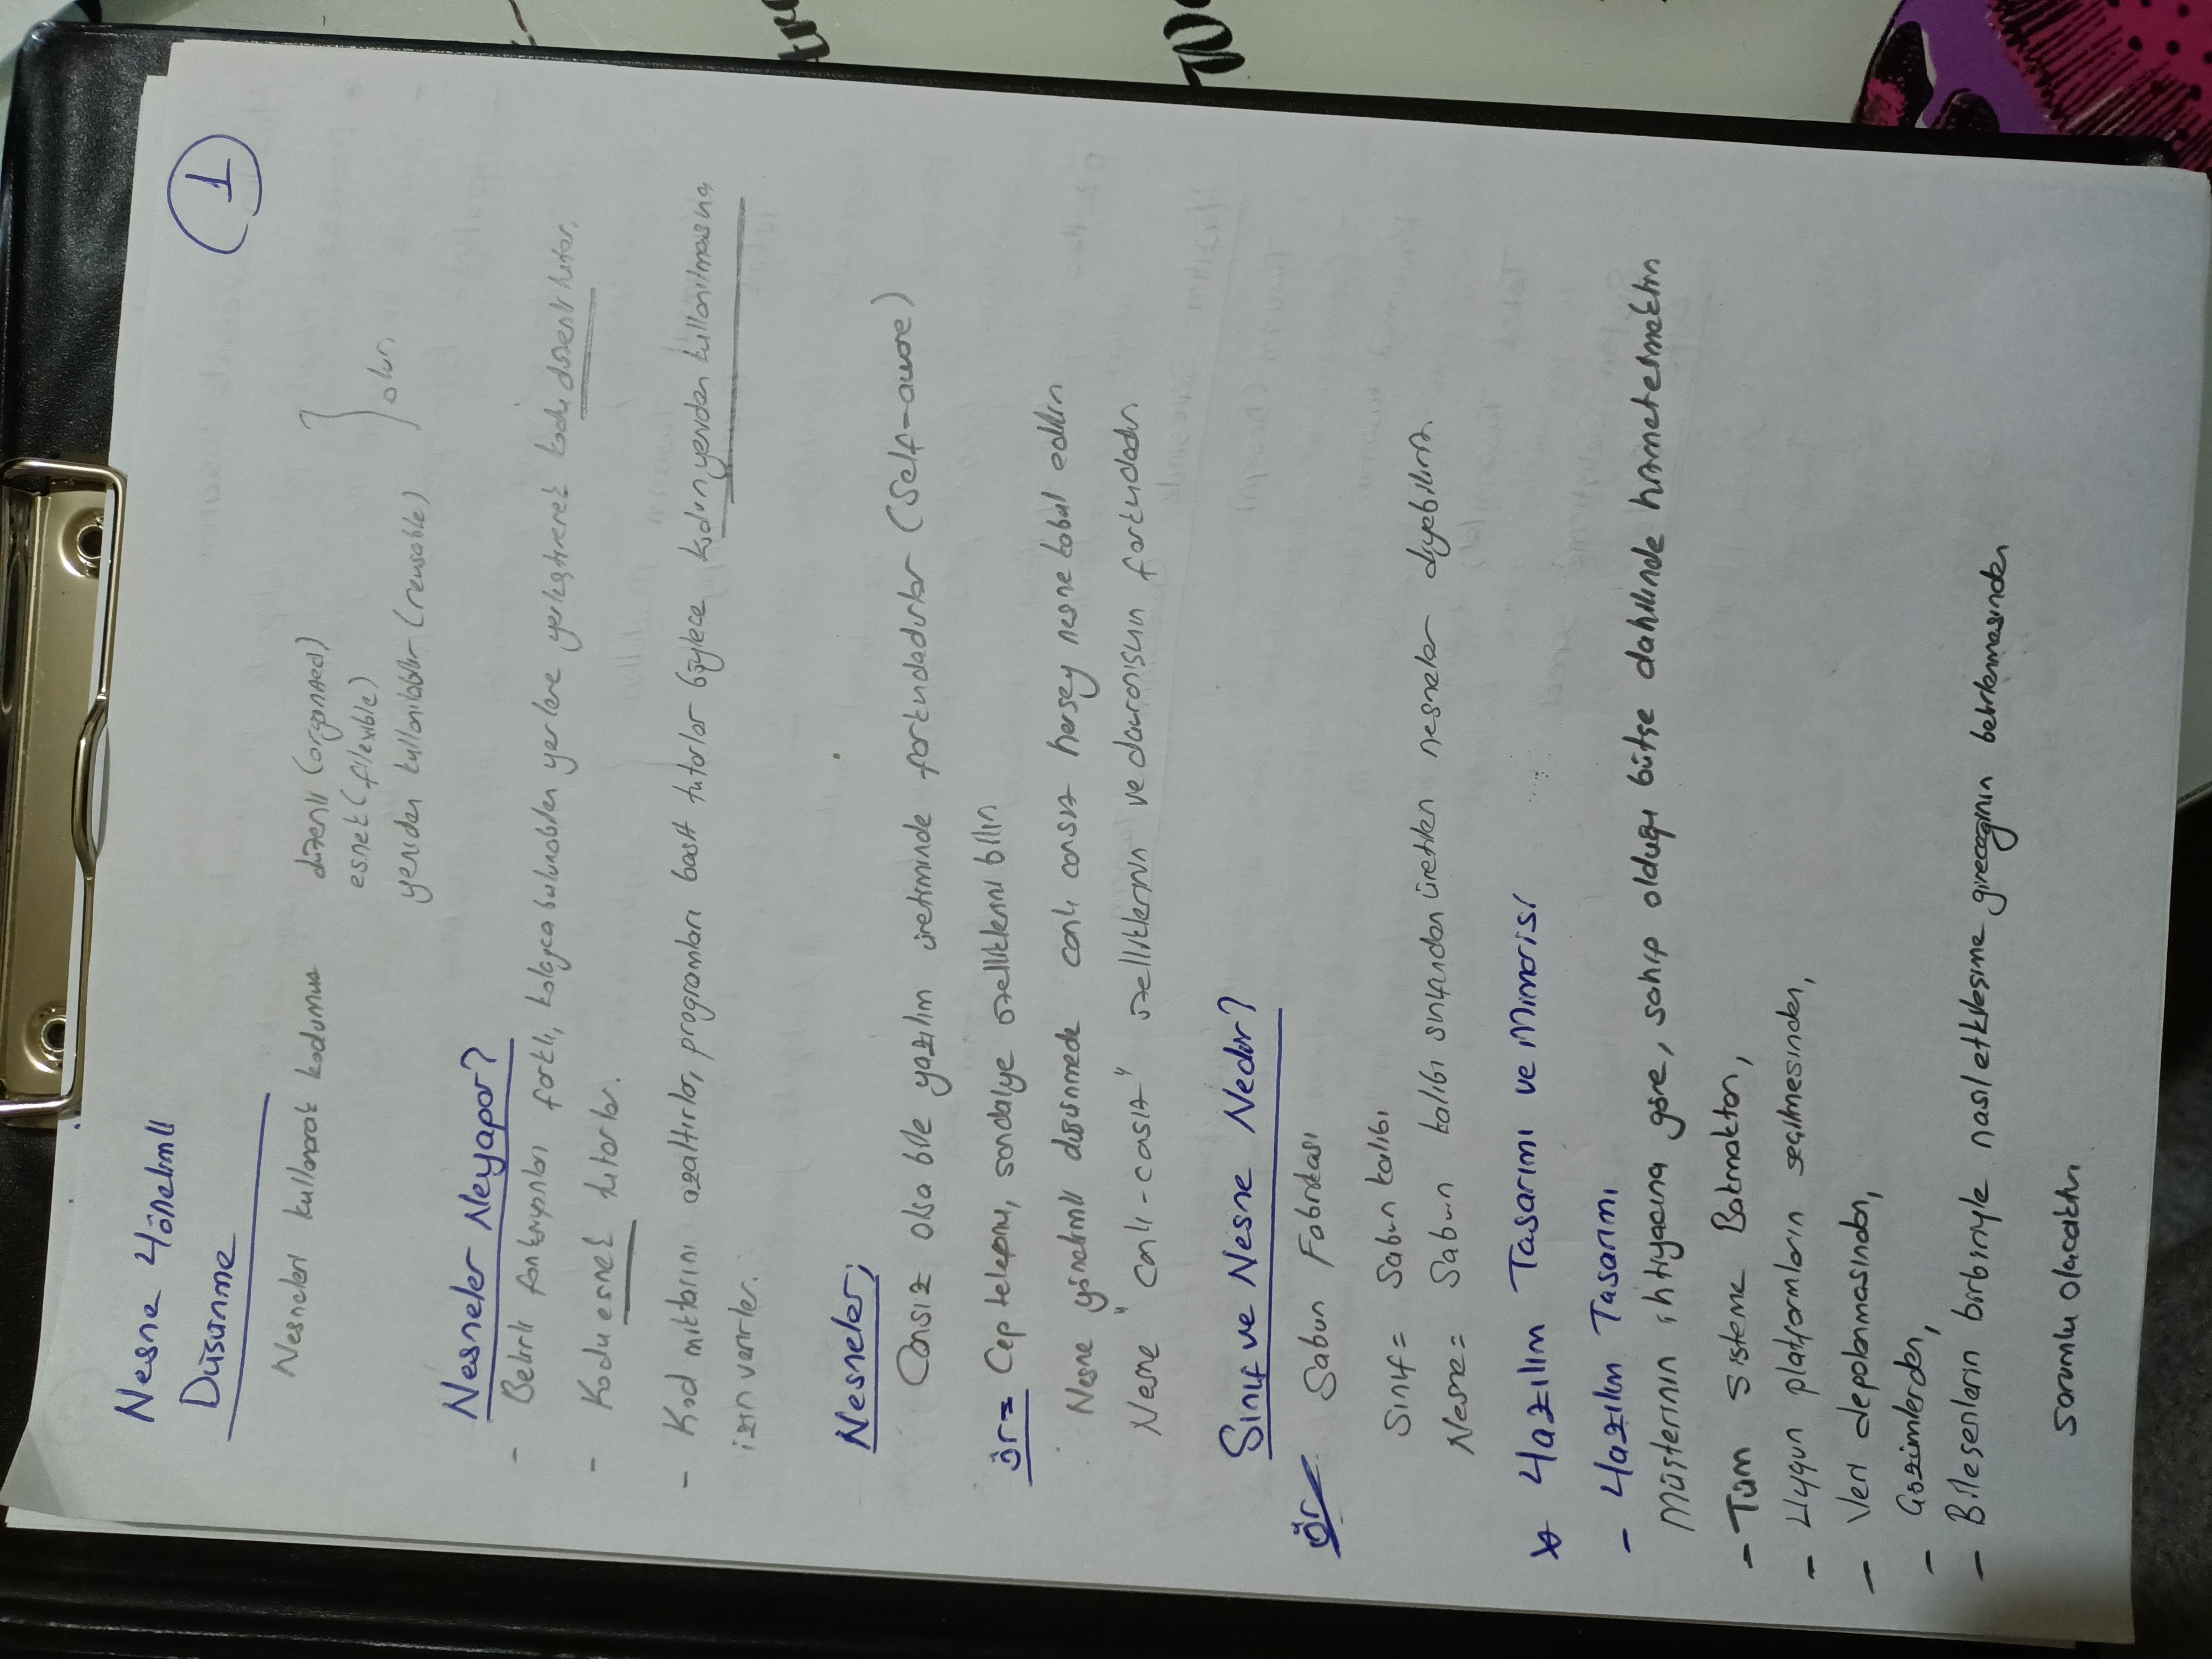 1
Nesne Yönelimli
Düşünme
Nesneleri kullanarak kodumuz düzenli (organized)
esnek (filexible)
yeniden kullanılabilir (reusable)
} olur.
Nesneler Neyapar?
- Belirli fonksiyonları farklı, kolayca bulunabilen yerlere yerleştirerek kodu düzenli tutar.
- Kodu esnek tutarlar.
- Kod miktarını azaltırlar, programları basit tutarlar böylece kodun yeniden kullanılmasına
izin verirler.
Nesneler;
Cansız olsa bile yazılım üretiminde farkındadırlar (Self-aware)
ör= Cep telefonu, sandalye özelliklerini bilir
Nesne yönelimli düşünmede canlı cansız herşey nesne kabul edilir
Nesne "canlı-casız" özelliklerinin ve davranışının farkındadır
Sınıf ve Nesne Nedir?
ör/ Sabun Fabrikası
Sınıf= Sabun kalıbı
Nesne= Sabun kalıbı sınıfından üretilen nesneler diyebiliriz.
* Yazılım Tasarımı ve Mimarisi
- Yazılım Tasarımı
Müşterinin ihtiyacına göre, sahip olduğu bütçe dahilinde hizmetetmektir
- Tüm sisteme Bakmaktan,
- Uygun platformların seçilmesinden,
- Veri depolanmasından,
- Çözümlerden,
- Bileşenlerin birbiriyle nasıl etkileşime gireceğinin belirlenmesinden
sorumlu olacaktır